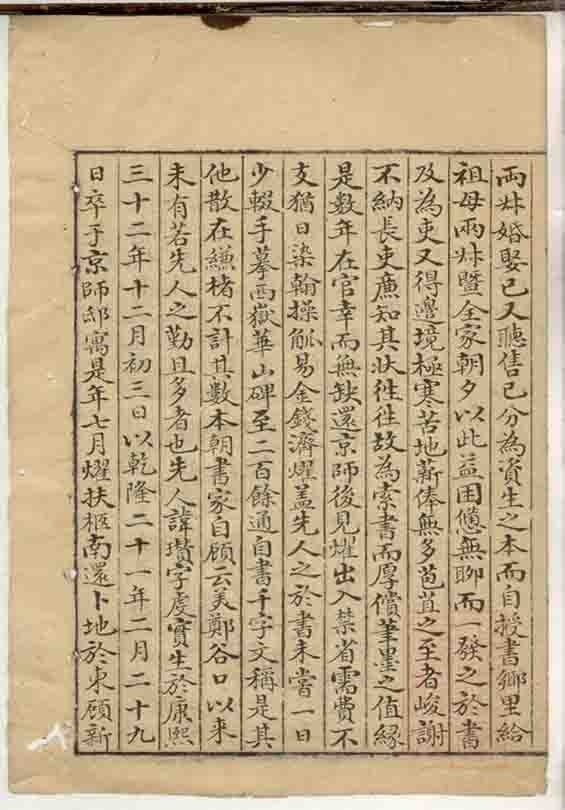 兩妹婚娶已又聽售己分為資生之本而自授書鄉里給
祖母兩妹暨全家朝夕以此益困憊無聊而一發之於書
及為吏又得邊境極寒苦地薪俸無多苞苴之至者峻謝
不納長吏廉知其狀往往故為索書而厚償筆墨之值緣
是數年在官幸而無缺還京師後見燿出入禁省需費不
支猶日染翰操觚易金錢濟燿蓋先人之於書未嘗一日
少輟手摹西嶽華山碑至二百餘通自書千字文稱是其
他散在縑楮不計其數本朝書家自顧云美鄭谷口以來
未有若先人之勤且多者也先人諱瓚字虔實生於康熙
三十二年十二月初三日以乾隆二十一年二月二十九
日卒于京師邸寓是年七月燿扶柩南還卜地於東顧新